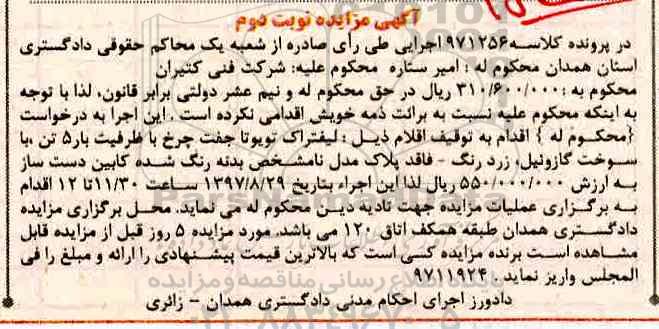 آگهی مزایده نوبت دوم
در پرونده کلاسه ۹۷۱۲۵۶ اجرایی طی رای صادره از شعبه یک محاکم حقوقی دادگستری
استان همدان محکوم له : امیر ستاره محکوم علیه: شرکت فنی کتیران
محکوم به : ۳۱۰/۶۰۰/۰۰۰ ریال در حق محکوم له و نیم عشر دولتی برابر قانون، لذا با توجه
به اینکه محکوم علیه نسبت به برائت ذمه خویش اقدامی نکرده است . این اجرا به درخواست
{محکوم له } اقدام به توقیف اقلام ذیل : لیفتراک تویوتا جفت چرخ با ظرفیت بار۵ تن ،با
سوخت گازوئیل، زرد رنگ - فاقد پلاک مدل نامشخص بدنه رنگ شده کابین دست ساز
به ارزش ۵۵۰/۰۰۰/۰۰۰ ریال لذا این اجراء بتاریخ ۱۳۹۷/۸/۲۹ ساعت ۱۱/۳۰تا ۱۲ اقدام
به برگزاری عملیات مزایده جهت تادیه دین محکوم له می نماید. محل برگزاری مزایده
دادگستری همدان طبقه همکف اتاق ۱۲۰ می باشد. مورد مزایده ۵ روز قبل از مزایده قابل
مشاهده است برنده مزایده کسی است که بالاترین قیمت پیشنهادی را ارائه و مبلغ را فی
المجلس واریز نماید . ۹۷۱۱۹۲۴
دادورز اجرای احکام مدنی دادگستری همدان - زائری